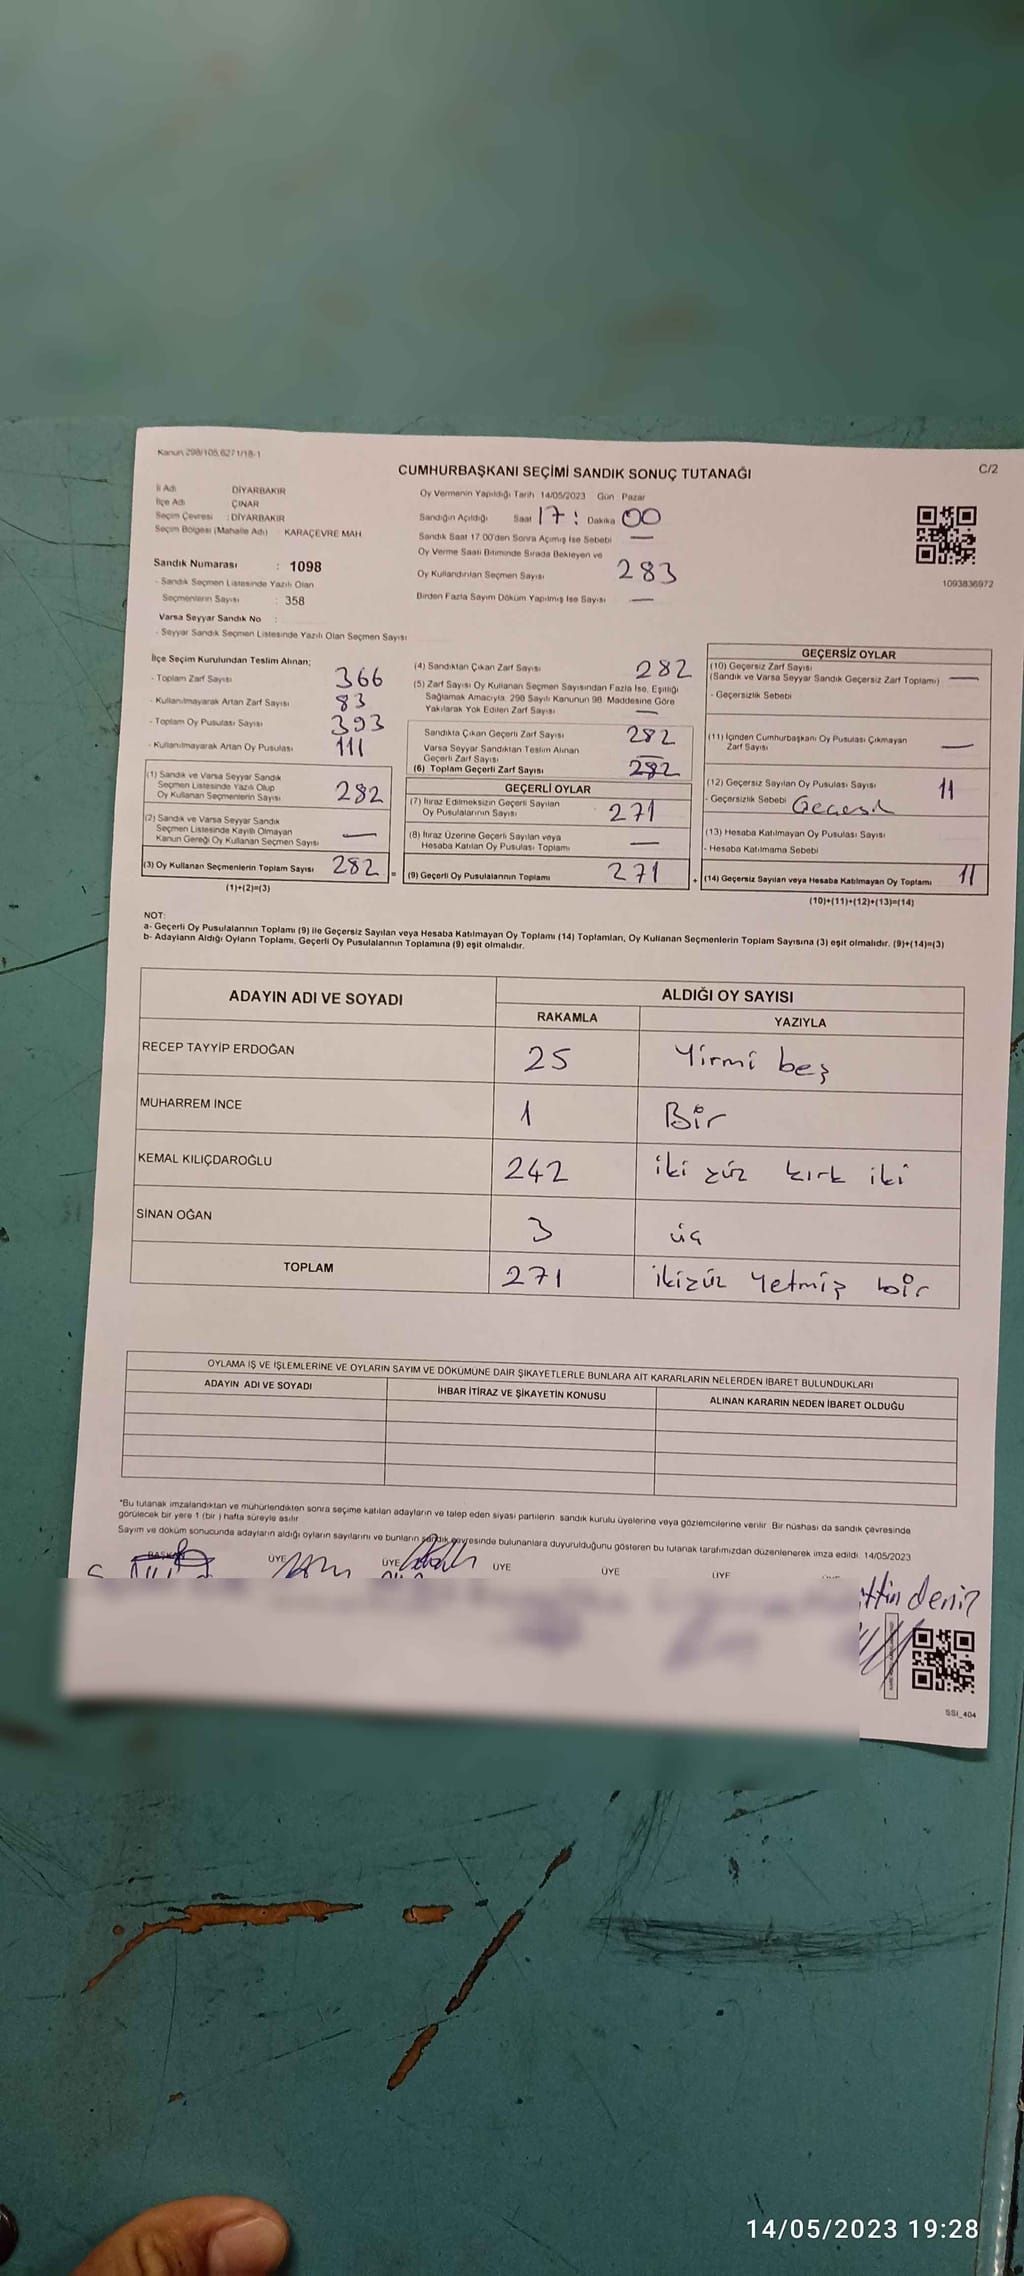 Kanun 298/105,6271/18-1
CUMHURBAŞKANI SEÇİMİ SANDIK SONUÇ TUTANAĞI
C/2
İl Adı DİYARBAKIR
İlçe Adı ÇINAR
Seçim Çevresi : DİYARBAKIR
Seçim Bölgesi (Mahalle Adı) : KARAÇEVRE MAH
Oy Vermenin Yapıldığı Tarih 14/05/2023 Gün Pazar
Sandığın Açıldığı Saat 17 : Dakika 00
Sandık Saat 17.00'den Sonra Açılmış İse Sebebi —
Oy Verme Saati Bitiminde Sırada Bekleyen ve
Oy Kullandırılan Seçmen Sayısı 283
Birden Fazla Sayım Döküm Yapılmış İse Sayısı —
1093836972
Sandık Numarası : 1098
- Sandık Seçmen Listesinde Yazılı Olan
Seçmenlerin Sayısı : 358
Varsa Seyyar Sandık No :
- Seyyar Sandık Seçmen Listesinde Yazılı Olan Seçmen Sayısı
İlçe Seçim Kurulundan Teslim Alınan;
- Toplam Zarf Sayısı 366
- Kullanılmayarak Artan Zarf Sayısı 83
- Toplam Oy Pusulası Sayısı 393
- Kullanılmayarak Artan Oy Pusulası 111
(1) Sandık ve Varsa Seyyar Sandık
Seçmen Listesinde Yazılı Olup
Oy Kullanan Seçmenlerin Sayısı 282
(2) Sandık ve Varsa Seyyar Sandık
Seçmen Listesinde Kayıtlı Olmayan
Kanun Gereği Oy Kullanan Seçmen Sayısı —
(3) Oy Kullanan Seçmenlerin Toplam Sayısı 282 =
(1)+(2)=(3)
(4) Sandıktan Çıkan Zarf Sayısı 282
(5) Zarf Sayısı Oy Kullanan Seçmen Sayısından Fazla İse, Eşitliği
Sağlamak Amacıyla, 298 Sayılı Kanunun 98. Maddesine Göre
Yakılarak Yok Edilen Zarf Sayısı —
Sandıkta Çıkan Geçerli Zarf Sayısı 282
Varsa Seyyar Sandıktan Teslim Alınan
Geçerli Zarf Sayısı —
(6) Toplam Geçerli Zarf Sayısı 282
GEÇERLİ OYLAR
(7) İtiraz Edilmeksizin Geçerli Sayılan
Oy Pusulalarının Sayısı 271
(8) İtiraz Üzerine Geçerli Sayılan veya
Hesaba Katılan Oy Pusulası Toplamı —
(9) Geçerli Oy Pusulalarının Toplamı 271 +
GEÇERSİZ OYLAR
(10) Geçersiz Zarf Sayısı
(Sandık ve Varsa Seyyar Sandık Geçersiz Zarf Toplamı) —
- Geçersizlik Sebebi
(11) İçinden Cumhurbaşkanı Oy Pusulası Çıkmayan
Zarf Sayısı —
(12) Geçersiz Sayılan Oy Pusulası Sayısı 11
- Geçersizlik Sebebi
(13) Hesaba Katılmayan Oy Pusulası Sayısı
- Hesaba Katılmama Sebebi
(14) Geçersiz Sayılan veya Hesaba Katılmayan Oy Toplamı 11
(10)+(11)+(12)+(13)=(14)
NOT:
a- Geçerli Oy Pusulalarının Toplamı (9) ile Geçersiz Sayılan veya Hesaba Katılmayan Oy Toplamı (14) Toplamları, Oy Kullanan Seçmenlerin Toplam Sayısına (3) eşit olmalıdır. (9)+(14)=(3)
b- Adayların Aldığı Oyların Toplamı, Geçerli Oy Pusulalarının Toplamına (9) eşit olmalıdır.
ADAYIN ADI VE SOYADI
ALDIĞI OY SAYISI
RAKAMLA YAZIYLA
RECEP TAYYİP ERDOĞAN 25 Yirmi beş
MUHARREM İNCE 1 Bir
KEMAL KILIÇDAROĞLU 242 iki yüz kırk iki
SİNAN OĞAN 3 üç
TOPLAM 271 ikiyüz yetmiş bir
OYLAMA İŞ VE İŞLEMLERİNE VE OYLARIN SAYIM VE DÖKÜMÜNE DAİR ŞİKAYETLERLE BUNLARA AİT KARARLARIN NELERDEN İBARET BULUNDUKLARI
ADAYIN ADI VE SOYADI İHBAR İTİRAZ VE ŞİKAYETİN KONUSU ALINAN KARARIN NEDEN İBARET OLDUĞU
*Bu tutanak imzalandıktan ve mühürlendikten sonra seçime katılan adayların ve talep eden siyasi partilerin sandık kurulu üyelerine veya gözlemcilerine verilir. Bir nüshası da sandık çevresinde
görülecek bir yere 1 (bir) hafta süreyle asılır
Sayım ve döküm sonucunda adayların aldığı oyların sayılarını ve bunların sandık çevresinde bulunanlara duyurulduğunu gösteren bu tutanak tarafımızdan düzenlenerek imza edildi. 14/05/2023
BAŞKAN ÜYE ÜYE ÜYE ÜYE ÜYE
deniz
SSI_404
14/05/2023 19:28